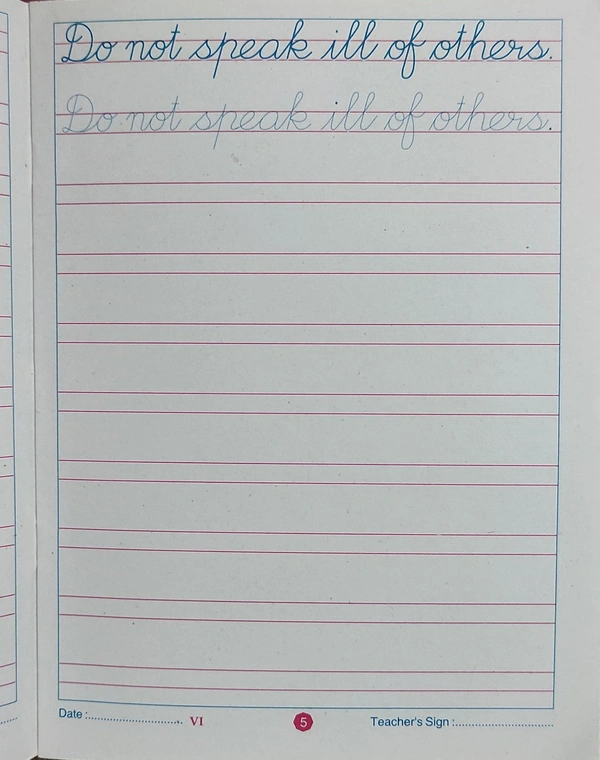 Do not speak ill of others.
Do not speak ill of others.
Date :................................ VI 5 Teacher's Sign :................................